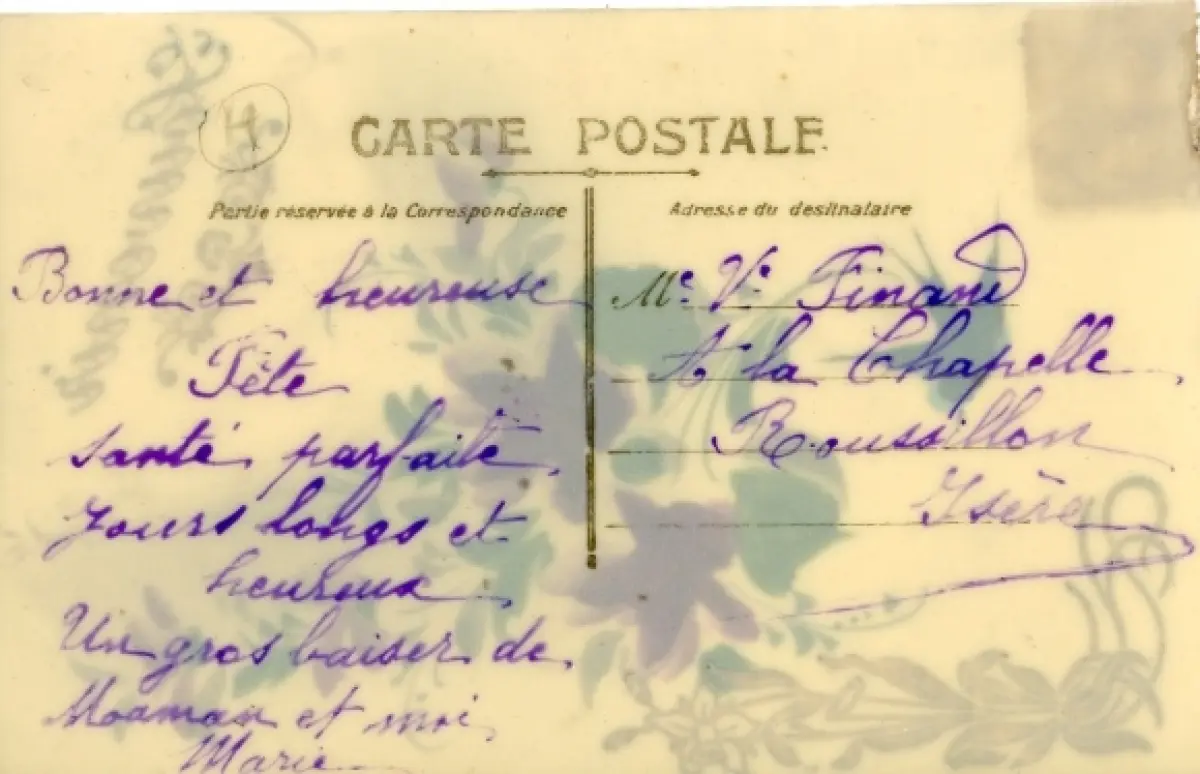 H
CARTE POSTALE
Partie réservée à la Correspondance
Adresse du destinataire
Bonne et heureuse
Fête
santé parfaite,
Jours longs et
heureux
Un gros baiser de
Maaman et moi
Marie
Me Ve Finand
A la Chapelle
Roussillon
Isère